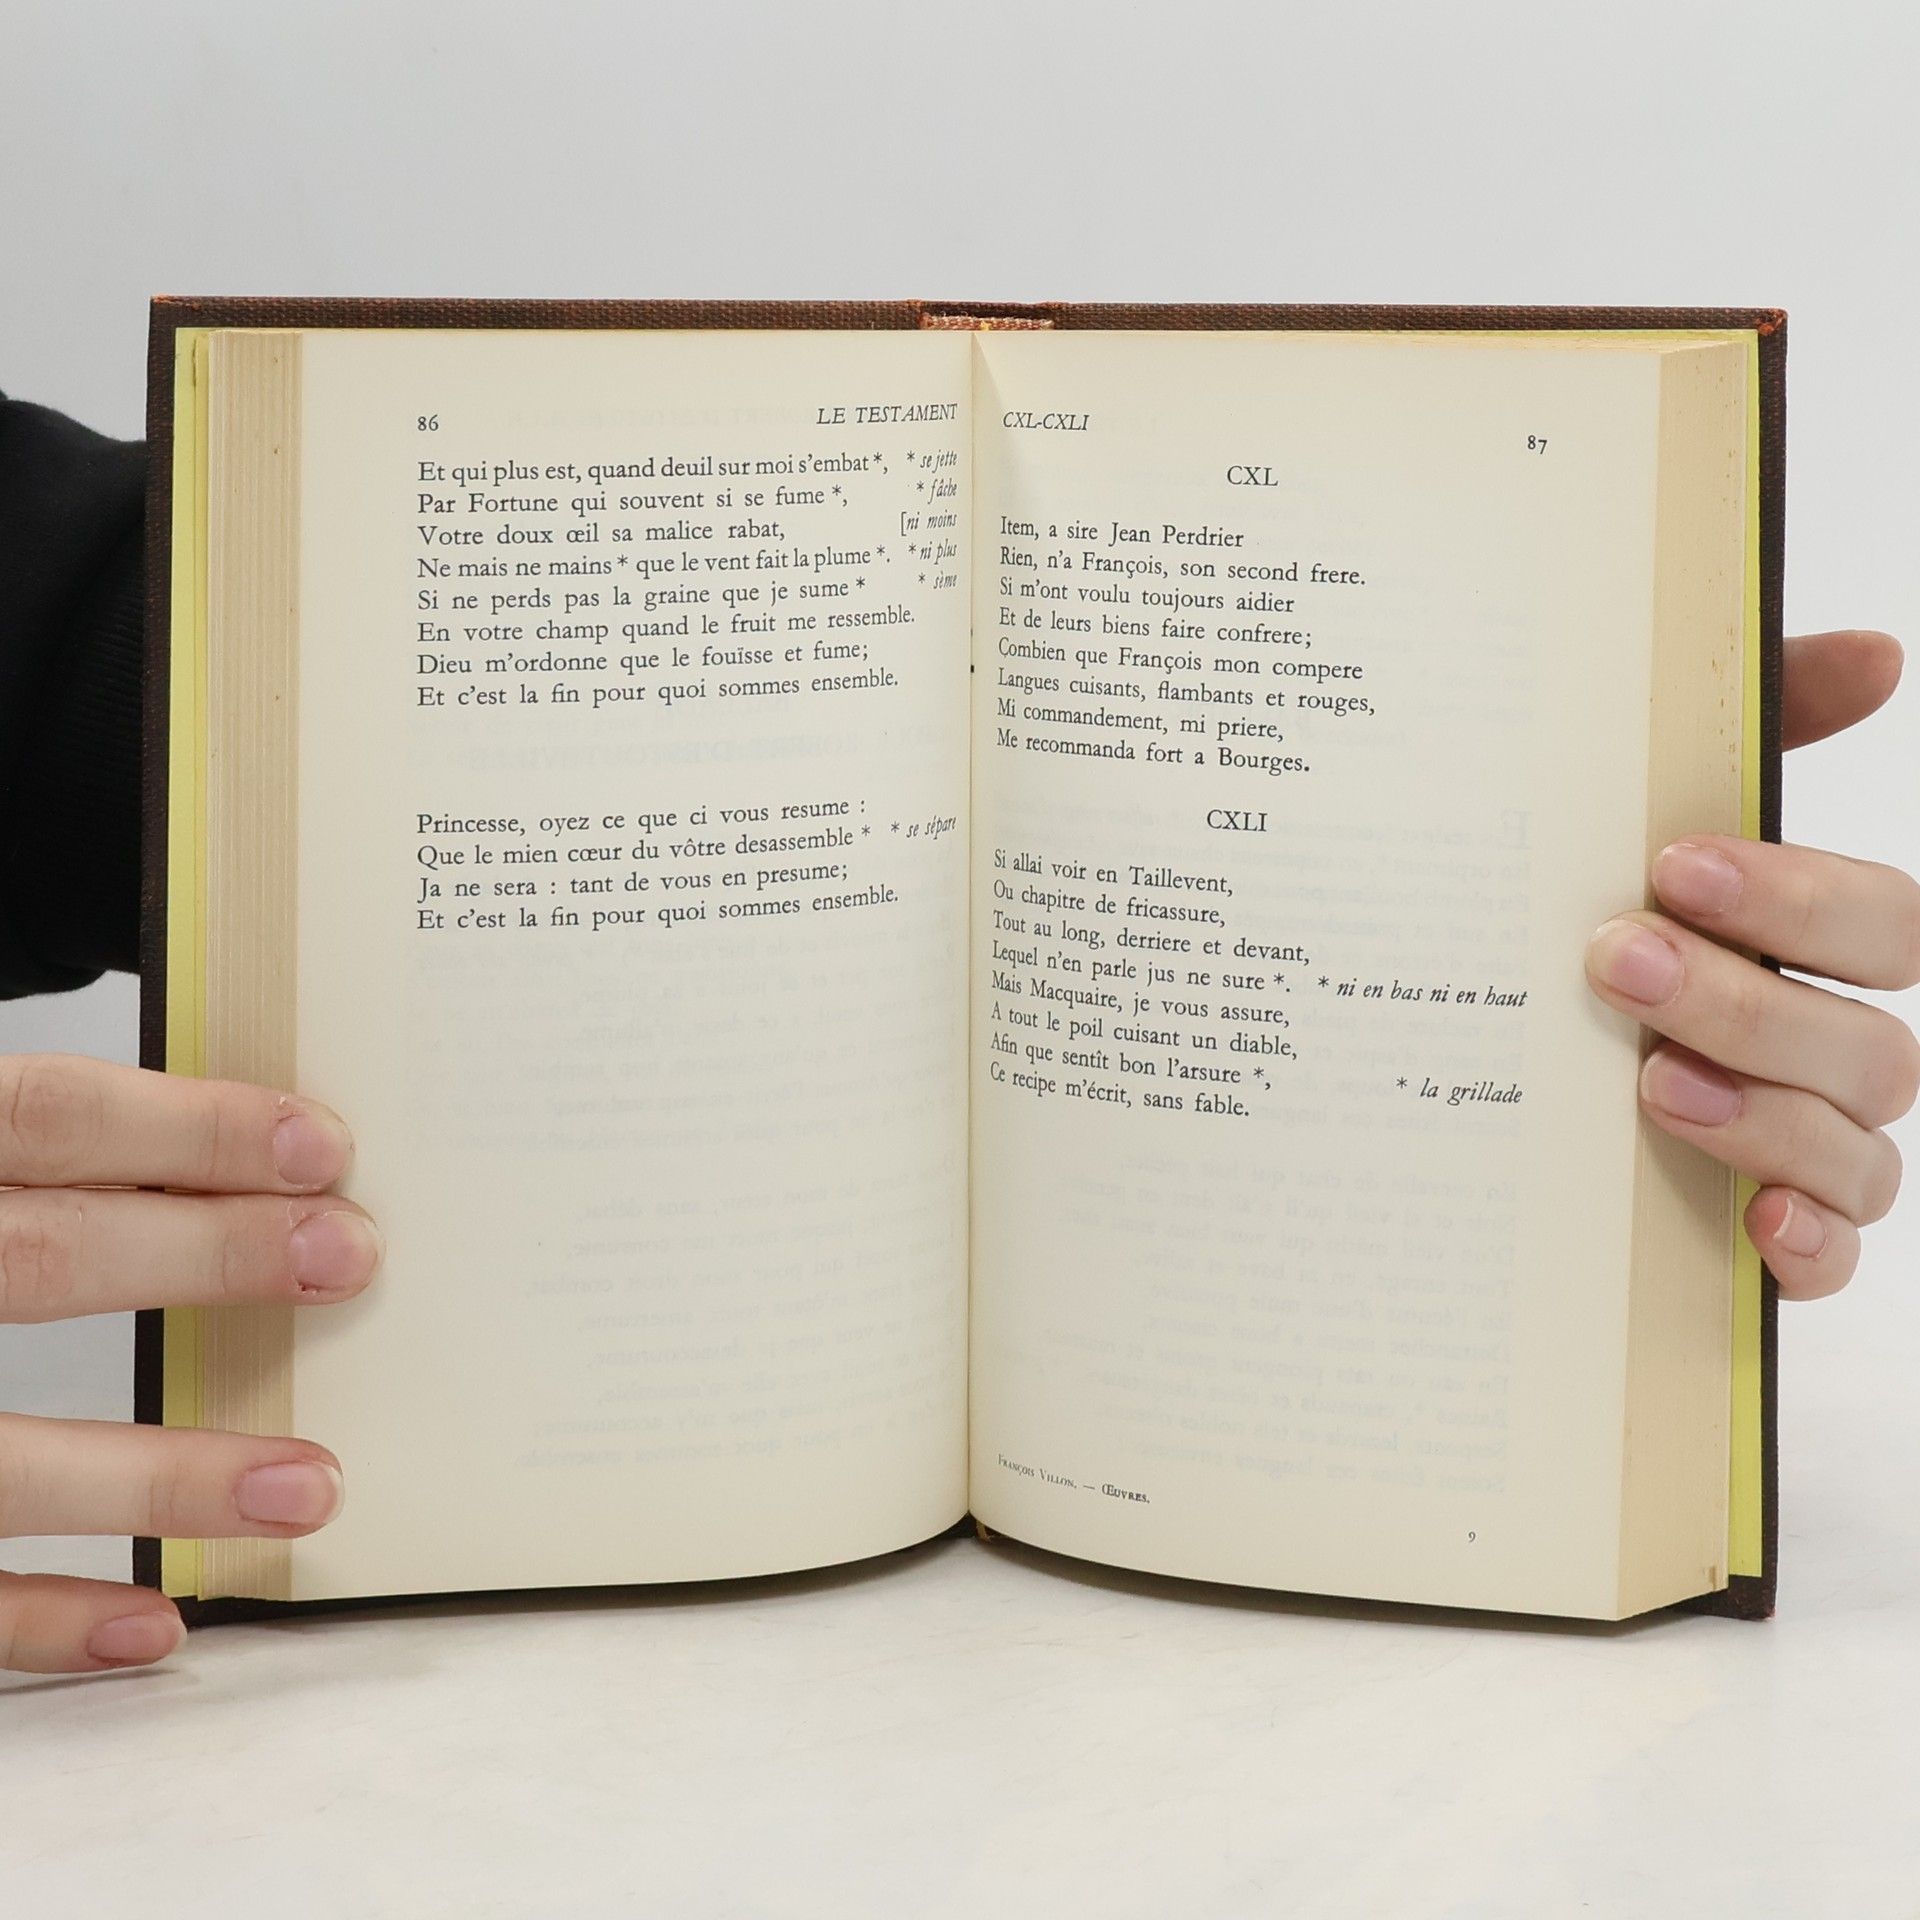 86 LE TESTAMENT
Et qui plus est, quand deuil sur moi s'embat *, * se jette
Par Fortune qui souvent si se fume *, * fâche
Votre doux œil sa malice rabat, [ni moins
Ne mais ne mains * que le vent fait la plume *. * ni plus
Si ne perds pas la graine que je sume * * sème
En votre champ quand le fruit me ressemble.
Dieu m'ordonne que le fouïsse et fume;
Et c'est la fin pour quoi sommes ensemble.
Princesse, oyez ce que ci vous resume :
Que le mien cœur du vôtre desassemble * * se sépare
Ja ne sera : tant de vous en presume;
Et c'est la fin pour quoi sommes ensemble.
CXL-CXLI 87
CXL
Item, a sire Jean Perdrier
Rien, n'a François, son second frere.
Si m'ont voulu toujours aidier
Et de leurs biens faire confrere;
Combien que François mon compere
Langues cuisants, flambants et rouges,
Mi commandement, mi priere,
Me recommanda fort a Bourges.
CXLI
Si allai voir en Taillevent,
Ou chapitre de fricassure,
Tout au long, derriere et devant,
Lequel n'en parle jus ne sure *. * ni en bas ni en haut
Mais Macquaire, je vous assure,
A tout le poil cuisant un diable,
Afin que sentît bon l'arsure *, * la grillade
Ce recipe m'écrit, sans fable.
FRANÇOIS VILLON. — ŒUVRES.
9